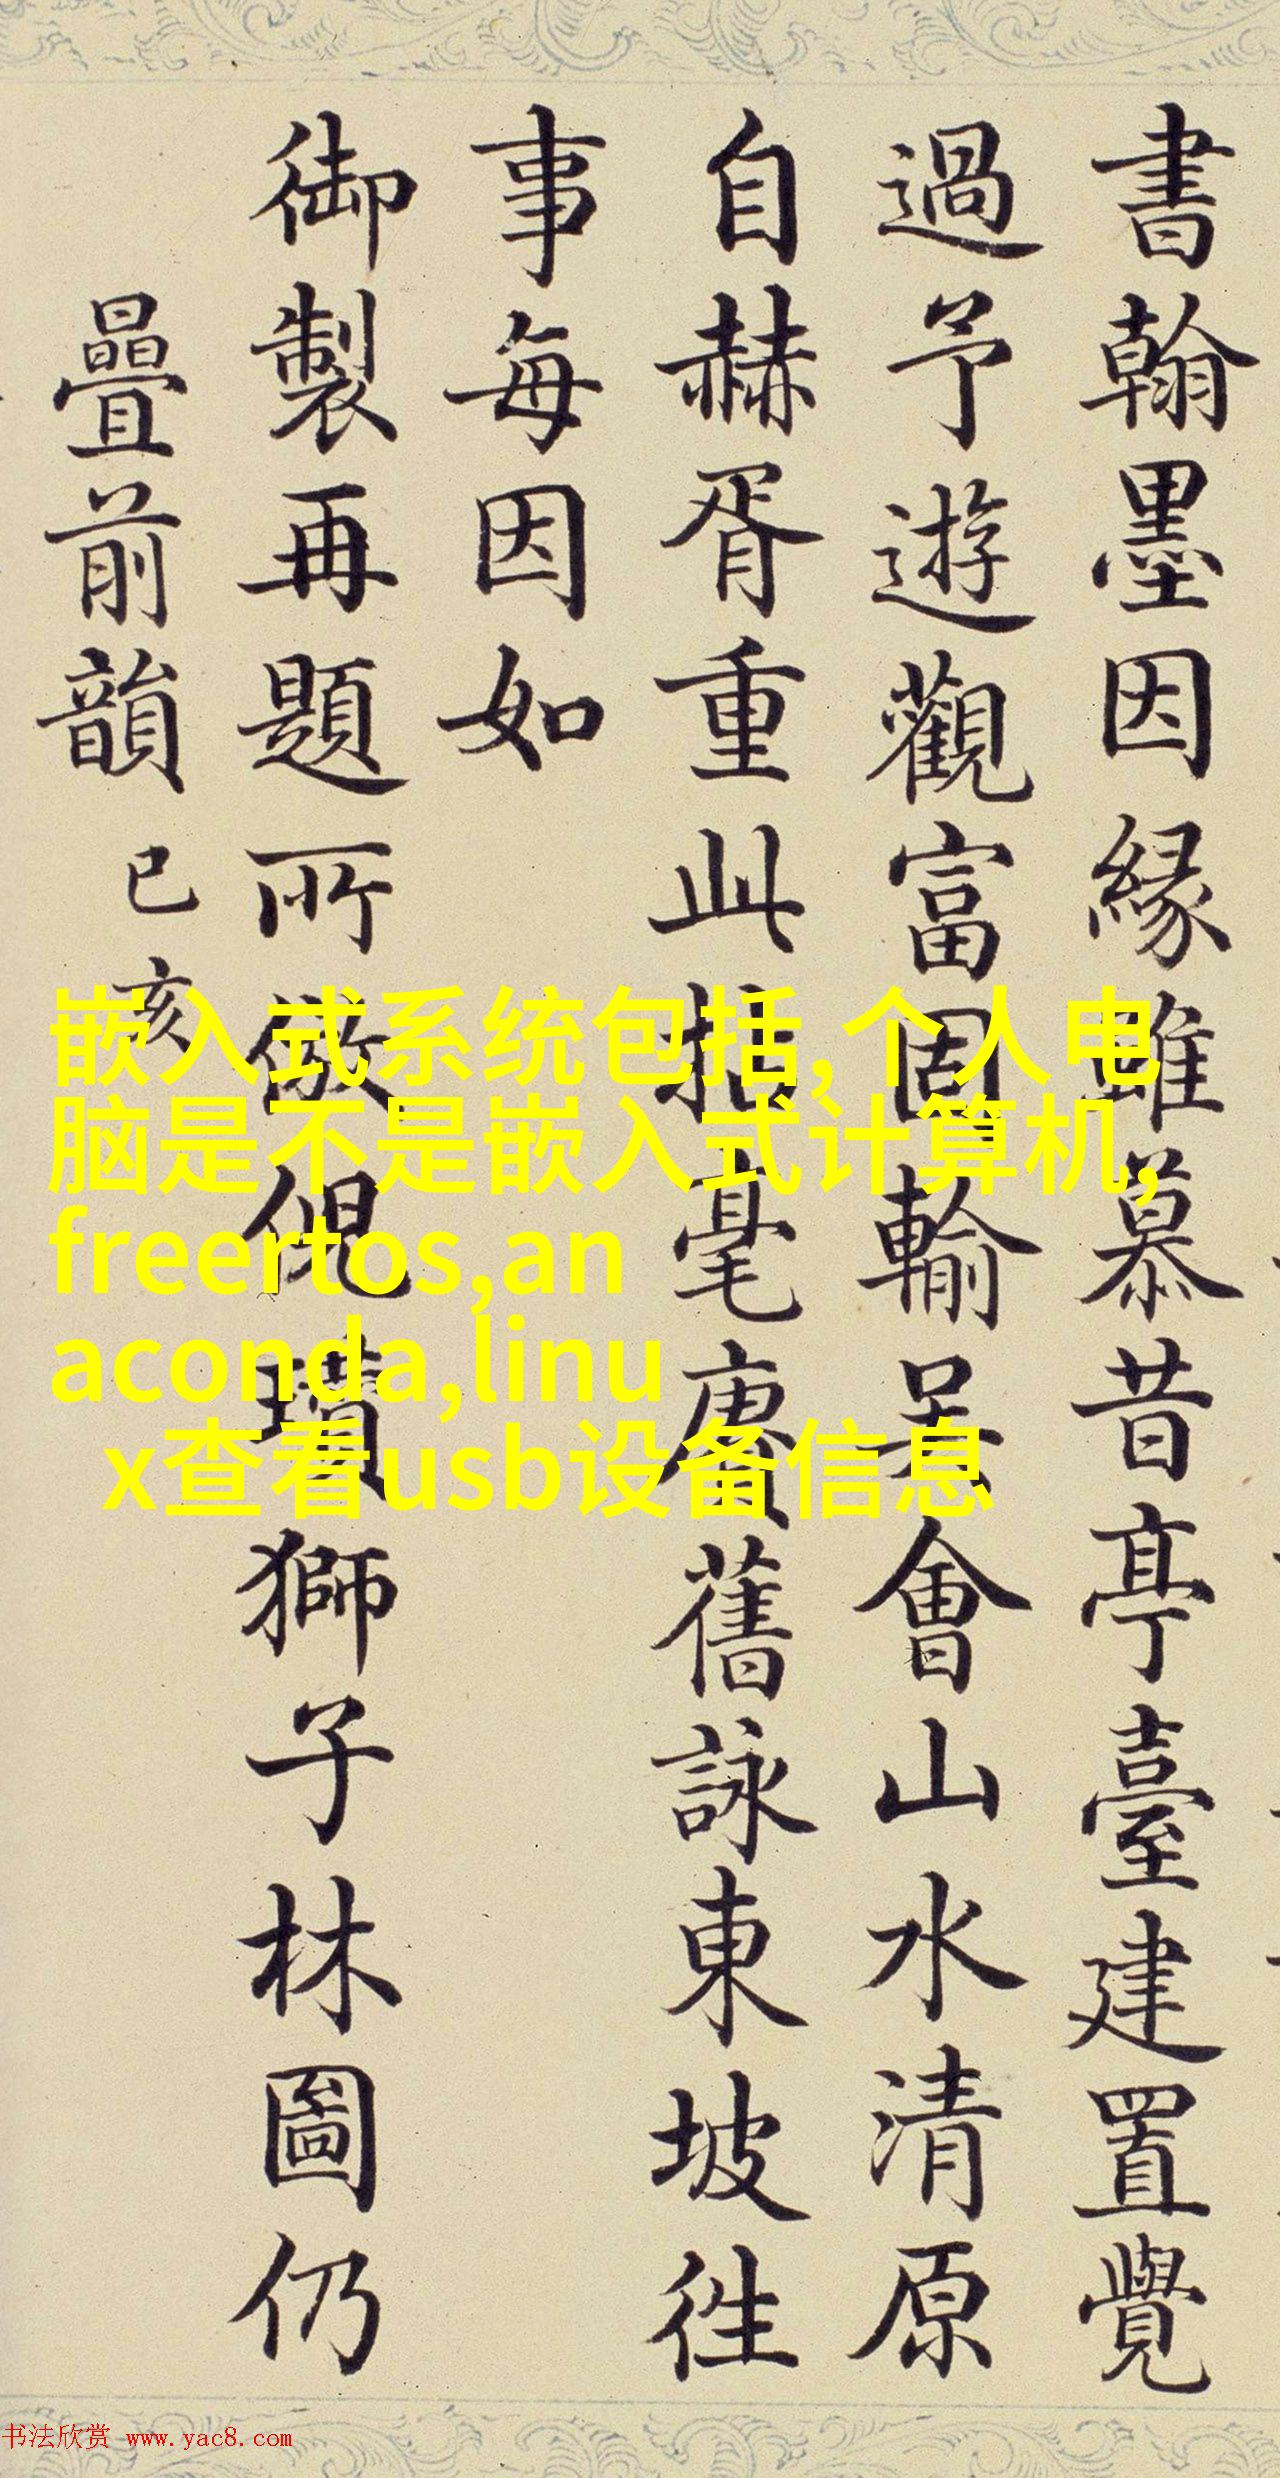 書翰墨因緣雖慕昔亭臺建置覺
過予遊觀富固輸吴會山水清原
自赫胥重此拈毫賡舊詠東坡徃
事每因如
御製再題所倣倪瓚獅子林圖仍
疊前韻己亥
嵌入式系统包括,个人电
脑是不是嵌入式计算机,
freertos,an
aconda,linu
x查看usb设备信息
书法欣赏 www.yac8.com